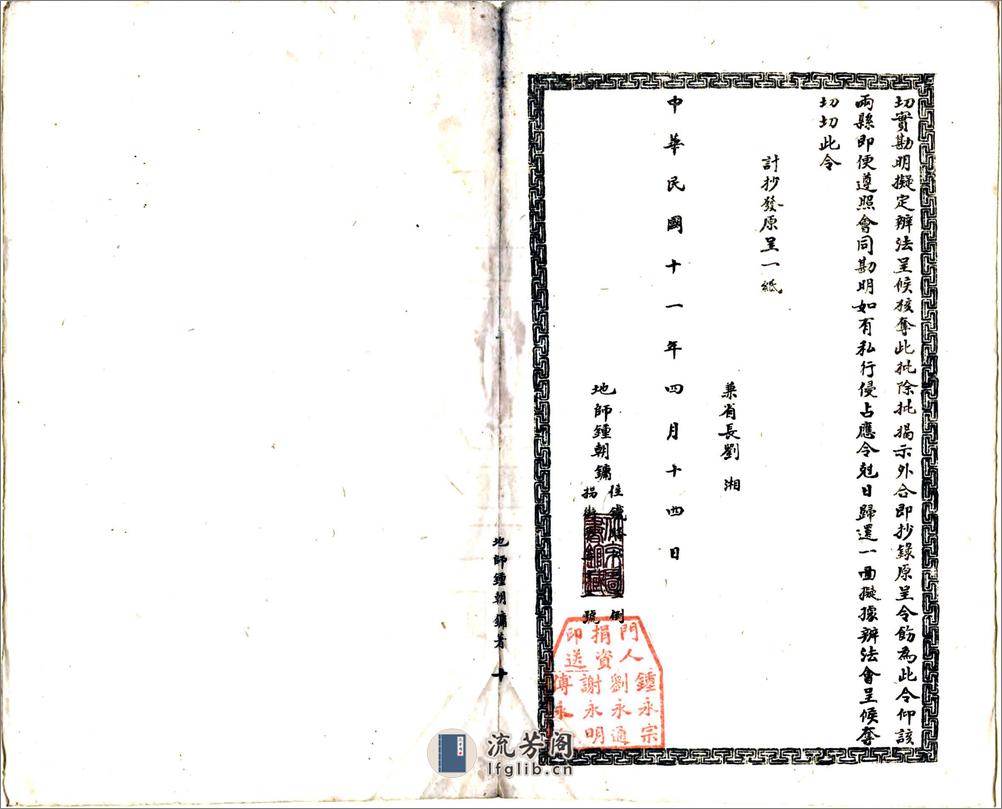 切實勘明擬定辦法呈候核奪此批除批揭示外合即抄錄原呈令飭為此令仰該
兩縣即便遵照會同勘明如有私行侵占應令尅日歸還一面擬據辦法會呈候奪
切切此令
計抄發原呈一紙
兼省長劉湘
中華民國十一年四月十四日
地師鍾朝鏞
住
倒
招
號
門人鍾永宗
捐資劉永通
印送謝永明
傅永
地師鍾朝鏞著 十
流芳阁
lfglib.cn